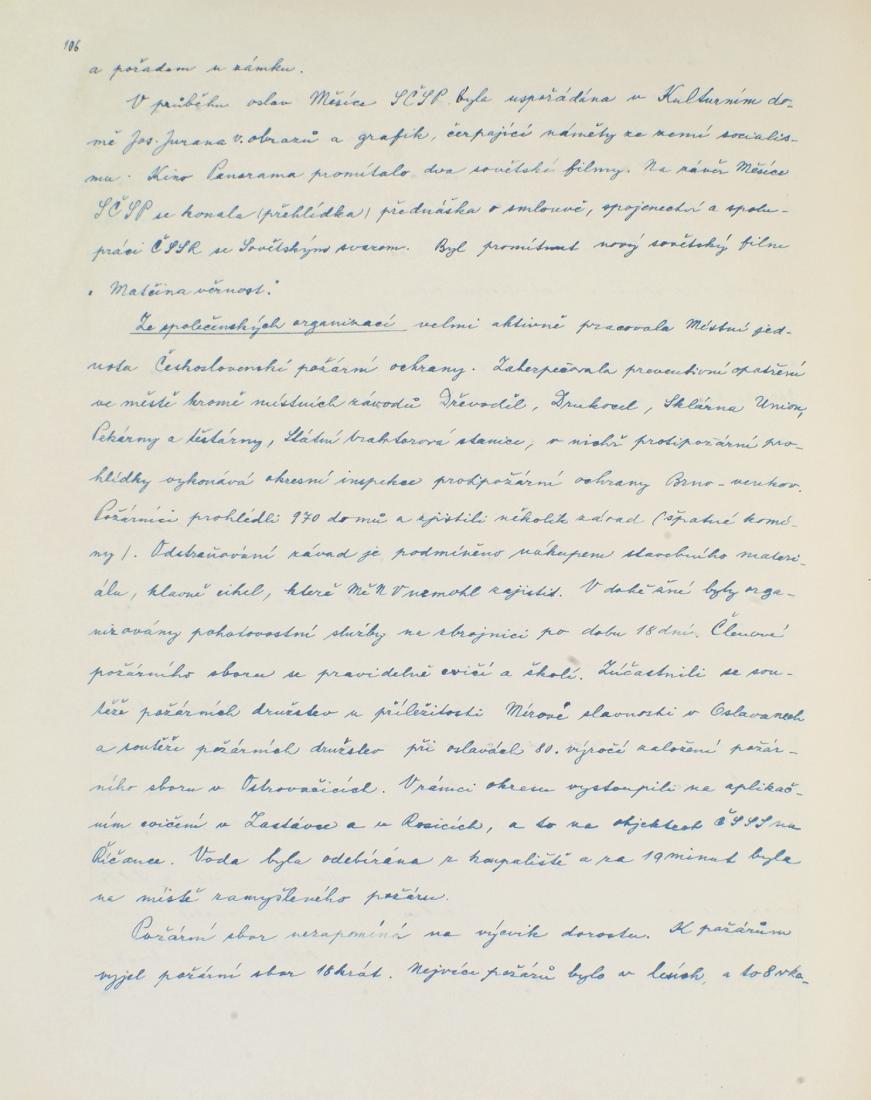 106
a pořadem u zámku.
V průběhu oslav Měsíce SČSP byla uspořádána v Kulturním do-
mě Jos. Jurana v. obrazů a grafik, čerpající náměty ze zemí socialis-
mu. Kino Panorama promítalo dva sovětské filmy. Na závěr Měsíce
SČSP se konala (přehlídka) přednáška o smlouvě, spojenectví a spolu-
práci ČSSR se Sovětským svazem. Byl promítnut nový sovětský film
„Matčina věrnost."
Ze společenských organizací velmi aktivně pracovala Místní jed-
nota Československé požární ochrany. Zabezpečovala preventivní opatření
ve městě kromě místních závodů Dřevoděl, Drukocel, Sklárna Union,
Pekárny a těstárny, Státní traktorová stanice, v nichž protipožární pro-
hlídky vykonává okresní inspekce protipožární ochrany Brno-venkov.
Požárníci prohlédli 970 domů a zjistili několik závad (špatné komí-
ny). Odstraňování závad je podmíněno nákupem stavebního materi-
álu, hlavně cihel, které MěNV nemohl zajistit. V době žní byly orga-
nizovány pohotovostní služby na zbrojnici po dobu 18 dní. Členové
požárního sboru se pravidelně cvičí a školí. Zúčastnili se sou-
těže požárních družstev u příležitosti Mírové slavnosti v Oslavanech
a soutěže požárních družstev při oslavách 80. výročí založení požár-
ního sboru v Ostrovačicích. V rámci okresu vystoupili na aplikač-
ním cvičení v Zastávce a v Rosicích, a to na objektech ČSSS na
Říčance. Voda byla odebírána z koupaliště a za 19 minut byla
na místě zamyšleného požáru.
Požární sbor nezapomíná na výcvik dorostu. K požárům
vyjel požární sbor 18krát. Nejvíce požárů bylo v lesích, a to 8 vka-